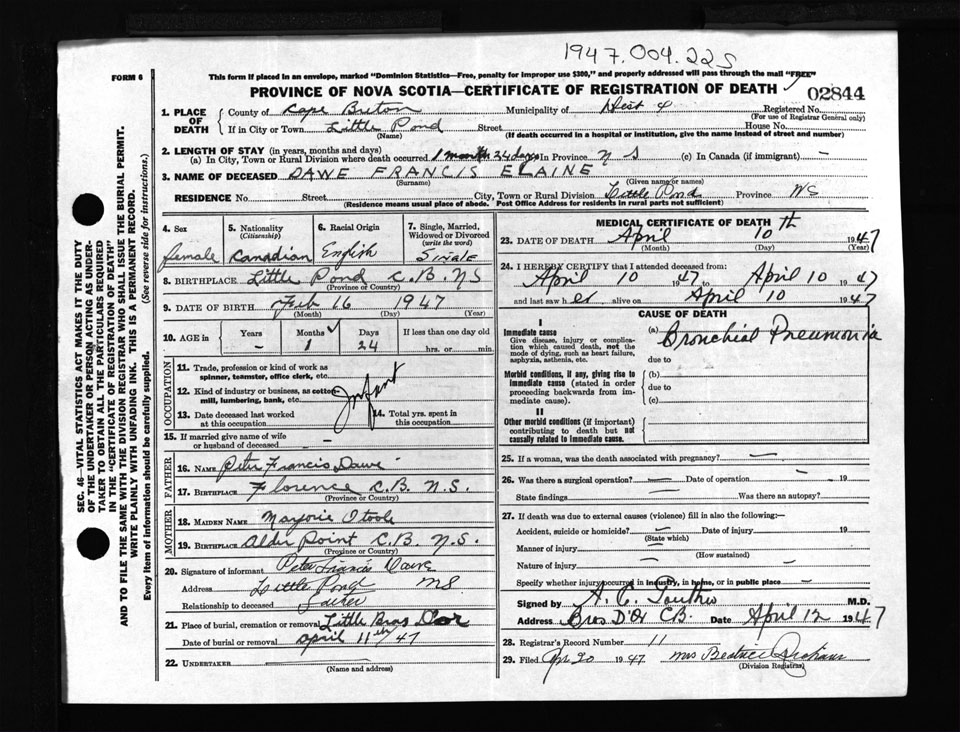 1947.004.225
FORM 6
This form if placed in an envelope, marked "Dominion Statistics—Free, penalty for improper use $300," and properly addressed will pass through the mail "FREE"
PROVINCE OF NOVA SCOTIA—CERTIFICATE OF REGISTRATION OF DEATH
02844
1. PLACE OF DEATH
County of Cape Breton Municipality of Dist 4 Registered No.
(For use of Registrar General only)
If in City or Town Little Pond Street House No.
(Name) (If death occurred in a hospital or institution, give the name instead of street and number)
2. LENGTH OF STAY (in years, months and days)
(a) In City, Town or Rural Division where death occurred 1 month 24 days In Province N S (c) In Canada (if immigrant) —
3. NAME OF DECEASED DAWE FRANCIS ELAINE
(Surname) (Given name or names)
RESIDENCE No. Street City, Town or Rural Division Little Pond Province NS
(Residence means usual place of abode. Post Office Address for residents in rural parts not sufficient)
4. Sex
female
5. Nationality
(Citizenship)
Canadian
6. Racial Origin
English
7. Single, Married, Widowed or Divorced
(write the word)
Single
8. BIRTHPLACE Little Pond C.B. NS
(Province or Country)
9. DATE OF BIRTH Feb 16 1947
(Month) (Day) (Year)
10. AGE in
Years Months Days If less than one day old
– 1 24 hrs. or min.
OCCUPATION
11. Trade, profession or kind of work as
spinner, teamster, office clerk, etc.
12. Kind of industry or business, as cotton
mill, lumbering, bank, etc.
Infant
13. Date deceased last worked
at this occupation
14. Total yrs. spent in
this occupation
15. If married give name of wife
or husband of deceased –
FATHER
16. NAME Peter Francis Dawe
17. BIRTHPLACE Florence C.B. N.S.
(Province or Country)
MOTHER
18. MAIDEN NAME Marjorie O'toole
19. BIRTHPLACE Alder Point C.B. N.S.
(Province or Country)
20. Signature of informant Peter Francis Dawe
Address Little Pond NS
Relationship to deceased father
21. Place of burial, cremation or removal Little Bras Dor
Date of burial or removal april 11th 47
22. UNDERTAKER
(Name and address)
MEDICAL CERTIFICATE OF DEATH
23. DATE OF DEATH April 10th 1947
(Month) (Day) (Year)
24. I HEREBY CERTIFY that I attended deceased from:
April 10 1947 to April 10 1947
and last saw her alive on April 10 1947
CAUSE OF DEATH
I
Immediate cause
Give disease, injury or complication which caused death, not the mode of dying, such as heart failure, asphyxia, asthenia, etc.
(a) Bronchial Pneumonia
due to
Morbid conditions, if any, giving rise to immediate cause (stated in order proceeding backwards from immediate cause).
(b)
due to
(c)
II
Other morbid conditions (if important) contributing to death but not causally related to immediate cause.
25. If a woman, was the death associated with pregnancy? —
26. Was there a surgical operation? — Date of operation — 19
State findings — Was there an autopsy?
27. If death was due to external causes (violence) fill in also the following:—
Accident, suicide or homicide? — Date of injury — 19
(State which)
Manner of injury —
(How sustained)
Nature of injury —
Specify whether injury occurred in industry, in home, or in public place —
Signed by M.D.
Address Bras D'Or C.B. Date April 12 1947
28. Registrar's Record Number 11
29. Filed Apr 20 1947 Mrs Beatrice
(Division Registrar)
SEC. 46—VITAL STATISTICS ACT MAKES IT THE DUTY
OF THE UNDERTAKER OR PERSON ACTING AS UNDER-
TAKER TO OBTAIN ALL THE PARTICULARS REQUIRED
IN THE "CERTIFICATE OF REGISTRATION OF DEATH"
AND TO FILE THE SAME WITH THE DIVISION REGISTRAR WHO SHALL ISSUE THE BURIAL PERMIT.
WRITE PLAINLY WITH UNFADING INK. THIS IS A PERMANENT RECORD.
Every item of information should be carefully supplied. (See reverse side for instructions.)